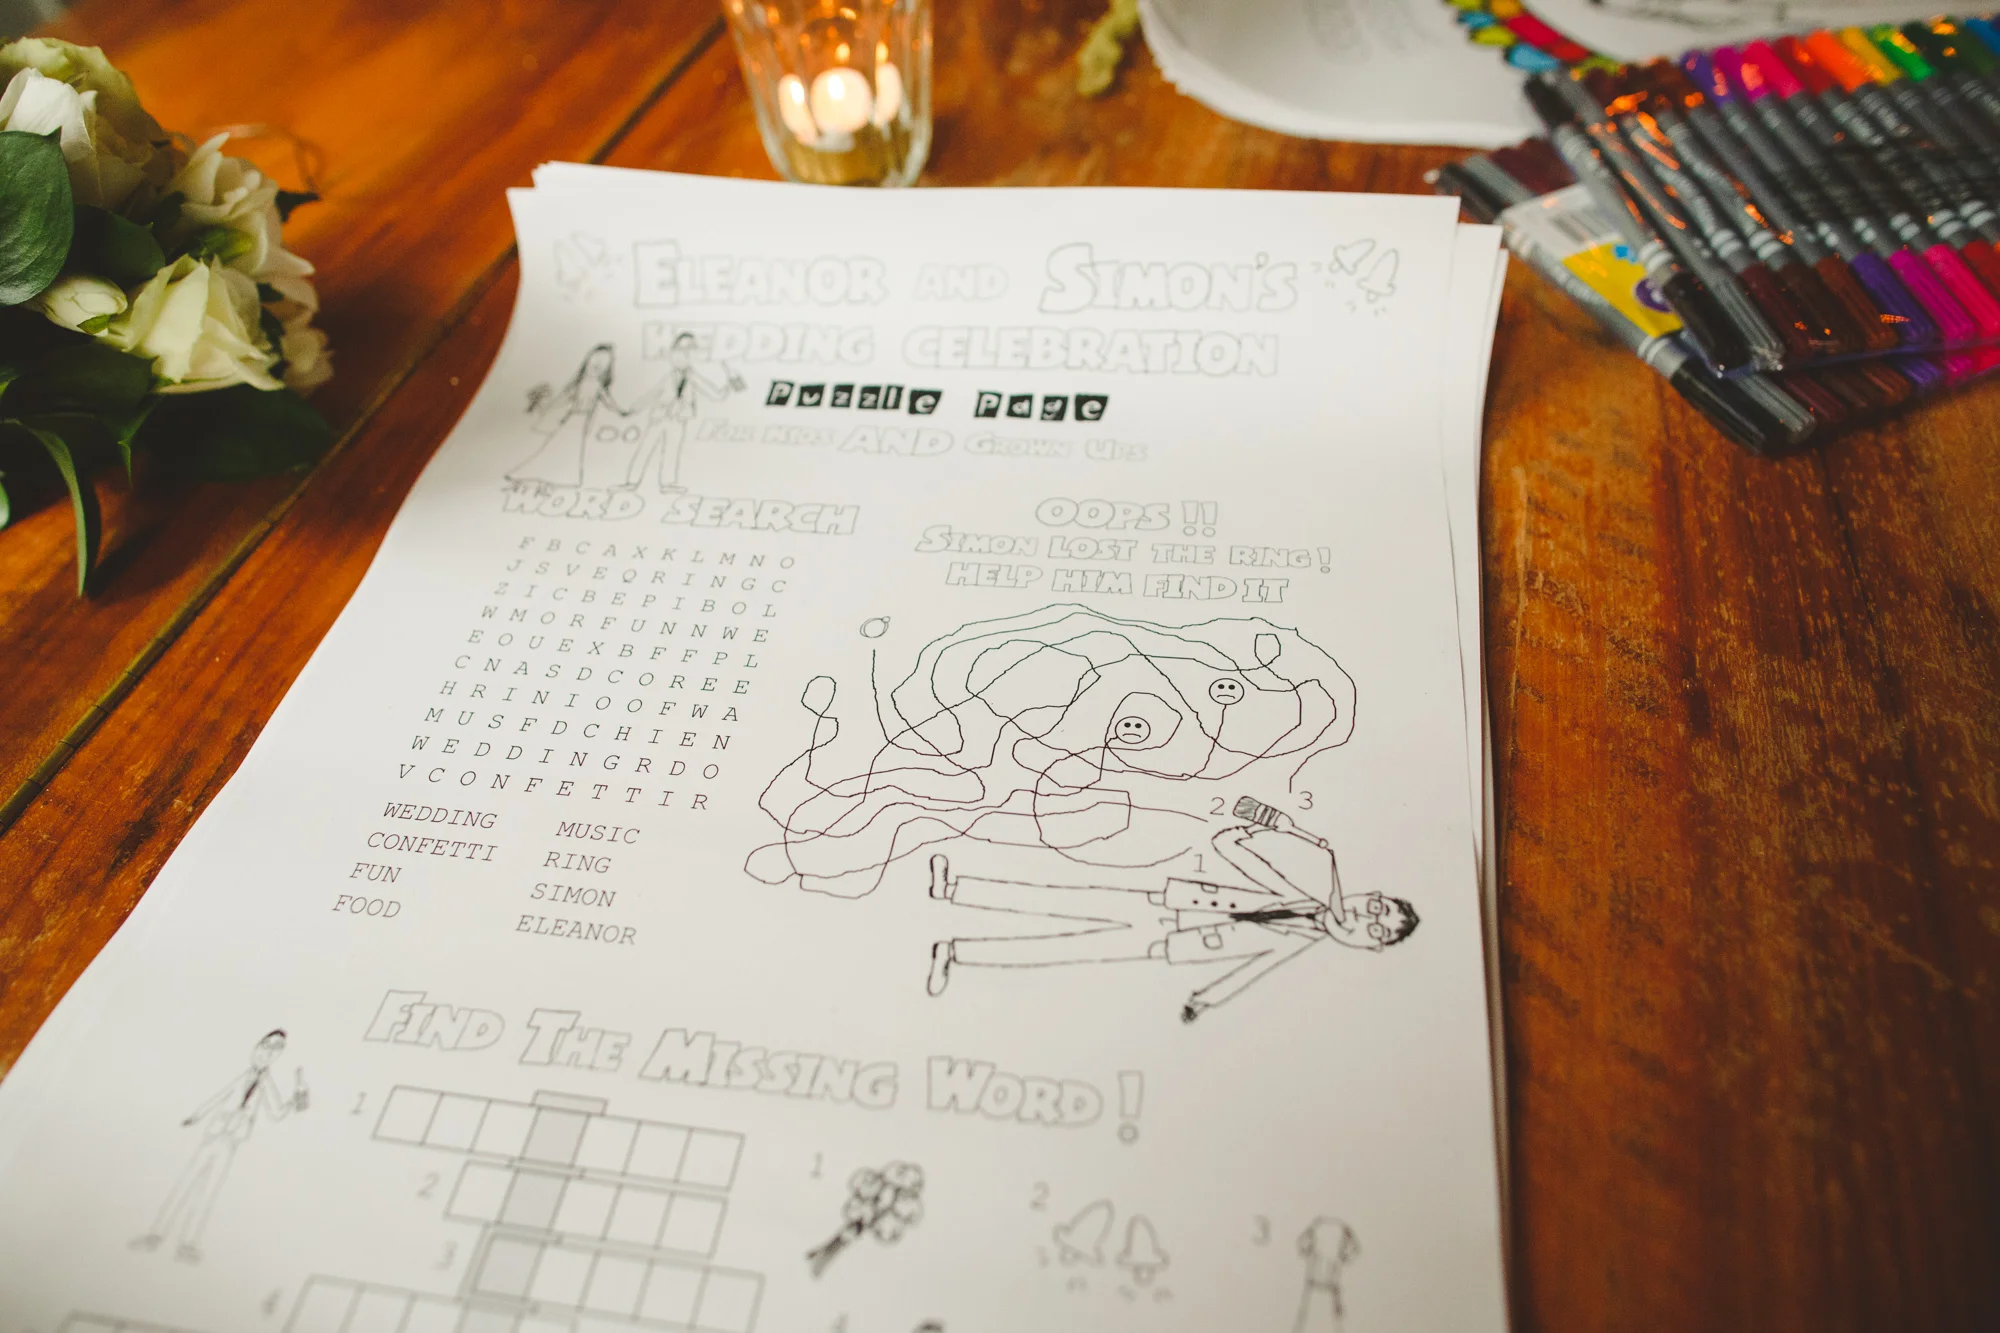 ELEANOR AND SIMON'S
WEDDING CELEBRATION
Puzzle Page
FOR KIDS AND GROWN UPS
WORD SEARCH
F B C A X K L M N O
J S V E Q R I N G C
Z I C B E P I B O L
W M O R F U N N W E
E O U E X B F F P L
C N A S D C O R E E
H R I N I O O F W A
M U S F D C H I E N
W E D D I N G R D O
V C O N F E T T I R
WEDDING MUSIC
CONFETTI RING
FUN SIMON
FOOD ELEANOR
OOPS!!
SIMON LOST THE RING!
HELP HIM FIND IT
2 3
1
FIND THE MISSING WORD!
1
2
3
4
1 2 3